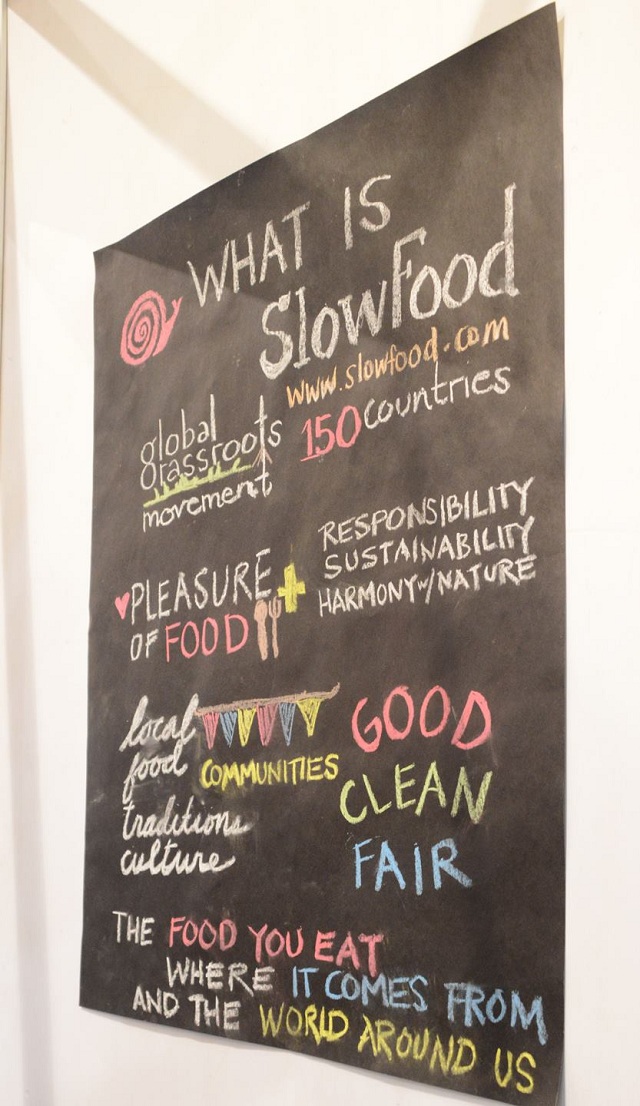 WHAT IS
SlowFood
www.slowfood.com
global
grassroots
movement
150 countries
PLEASURE
OF FOOD
+
RESPONSIBILITY
SUSTAINABILITY
HARMONY w/ NATURE
local
food
COMMUNITIES
traditions
culture
GOOD
CLEAN
FAIR
THE FOOD YOU EAT
WHERE IT COMES FROM
AND THE WORLD AROUND US